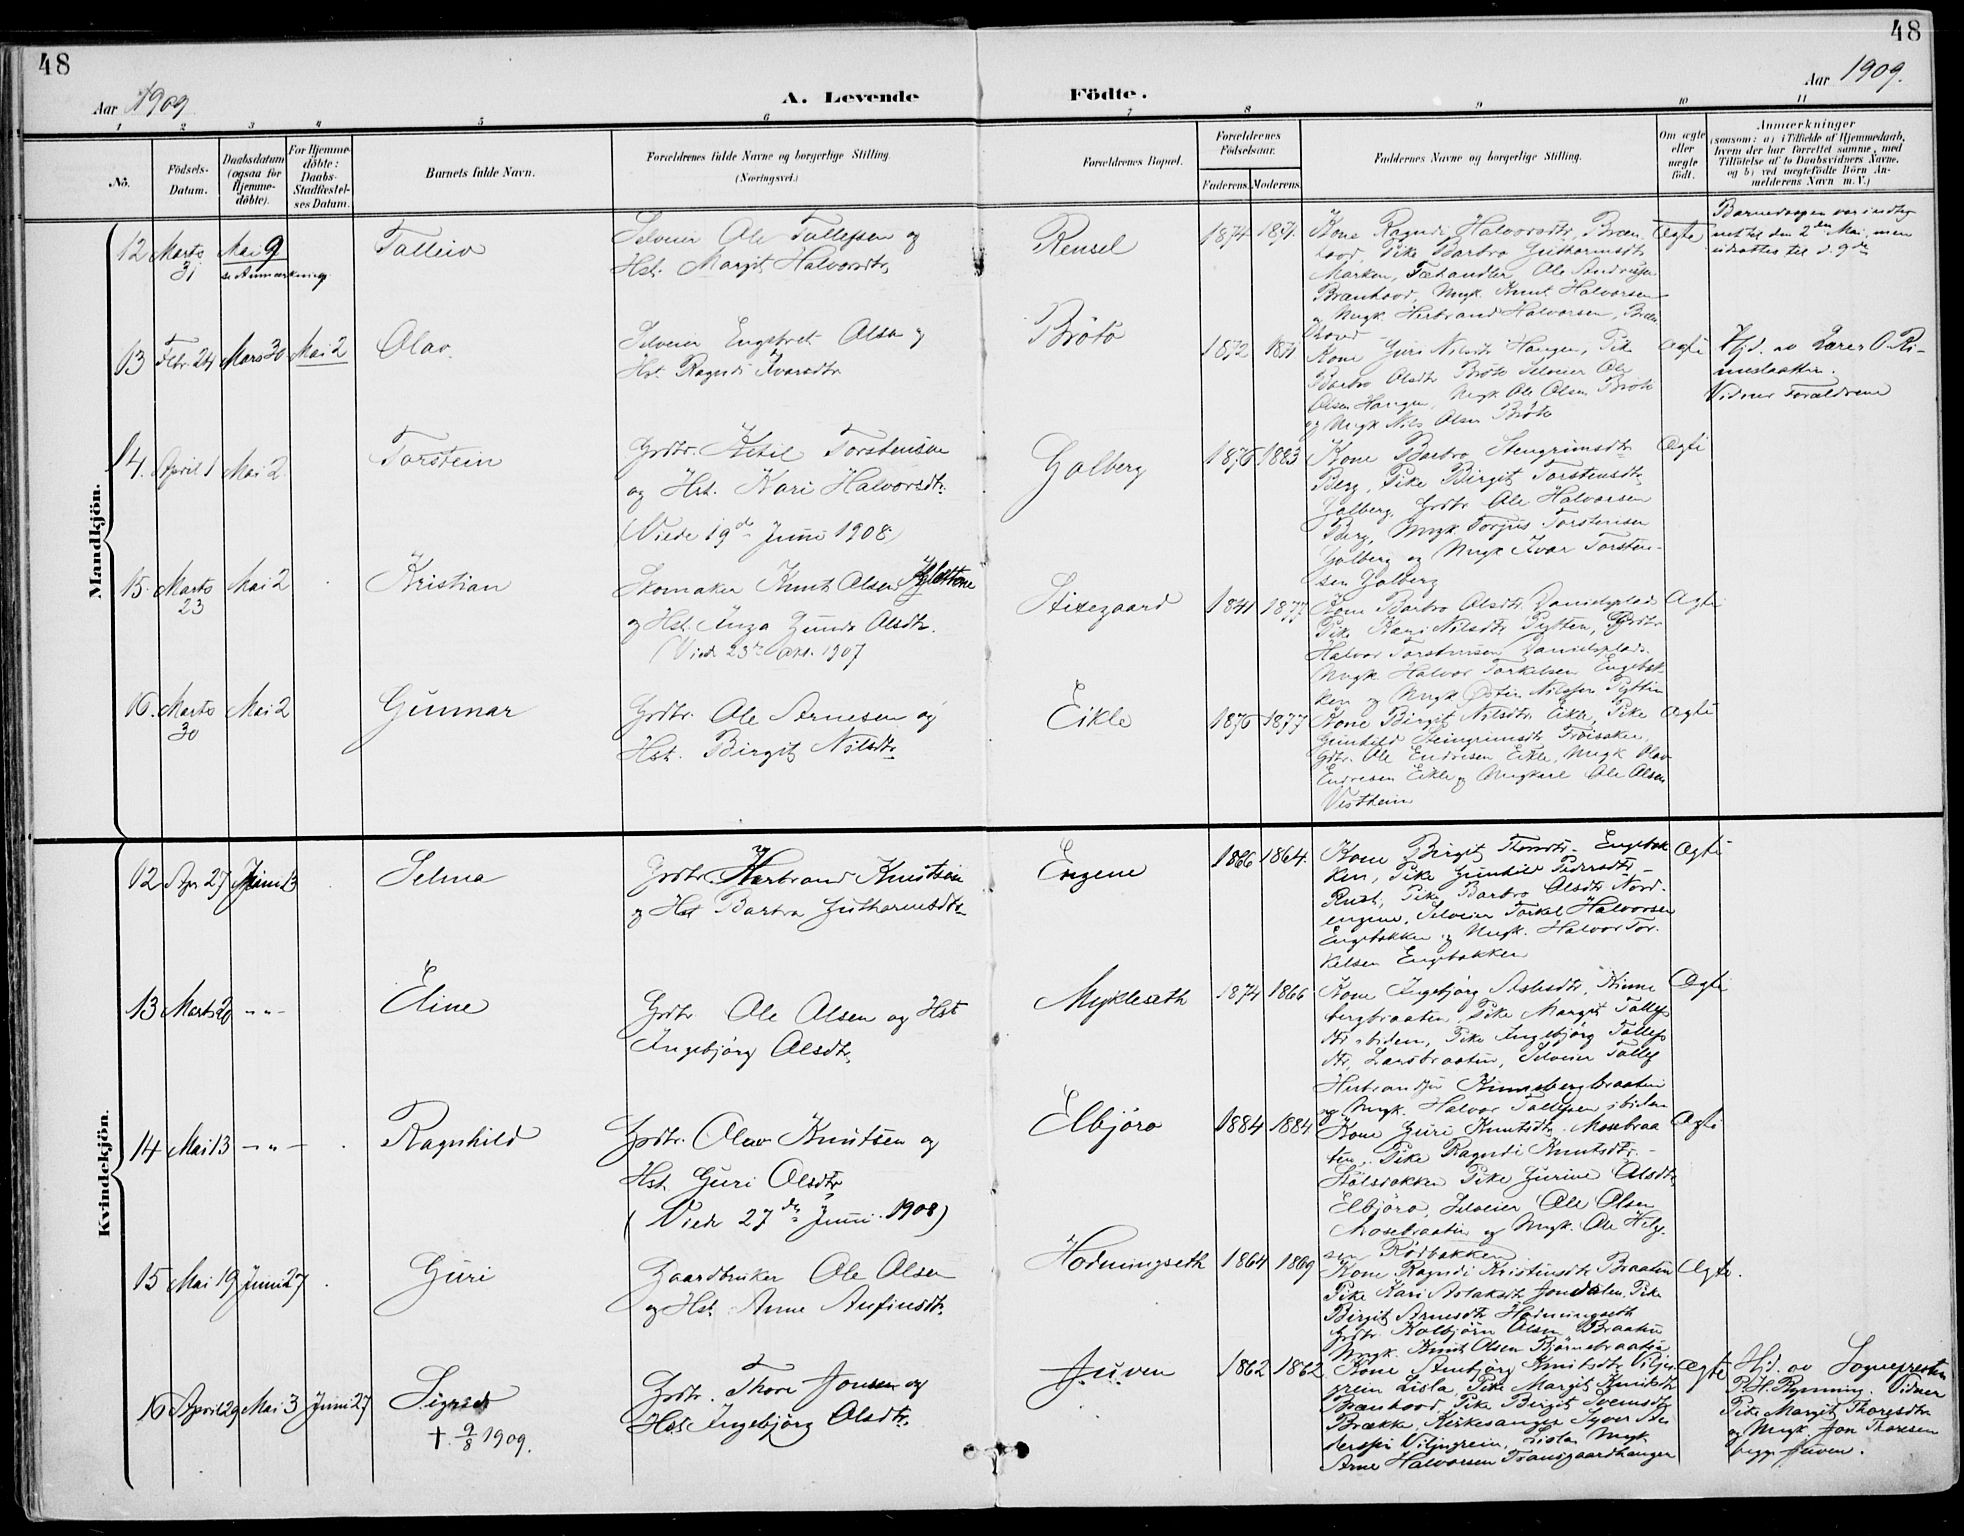 48
48
Aar 1909
A. Levende
Födte.
Aar 1909.
1 2 3 4 5 6 7 8 9 10 11
No.
Födsels-
Datum.
Daabsdatum
(ogsaa for
Hjemme-
döbte).
For Hjemme-
döbte:
Daabs-
Stadfæstel-
ses Datum.
Barnets fulde Navn.
Forældrenes fulde Navne og borgerlige Stilling.
(Næringsvei.)
Forældrenes Bopæl.
Forældrenes
Födselsaar.
Faderens. Moderens.
Faddernes Navne og borgerlige Stilling.
Om ægte
eller
uægte
födt.
Anmærkninger
(saasom: a) i Tilfælde af Hjemmedaab,
hvem der har forrettet samme, med
Tilföielse af to Daabsvidners Navne,
og b) ved uægtefödte Börn An-
melderens Navn m. V.)
Mandkjön.
12 Marts 31 Mai 9
se Anmærkning
Talleiv
Selveier Ole Tollefsen og
Hst. Margit Halvorsdtr
Rensel
1874
Kone Ragndi Halvorsdtr, Bræn-
hovd, Pike Barbro Guthormsdtr
Marken, Fæhandler Ole
Brænhovd, Ungk. Knut Halvorsen
og Ungk. Herbrand Halvorsen, Bræn
hovd
Ægte
Barnedaapen var indteg
net til den 2den Mai, men
udsattes til d. 9de
13 Febr 24 Mars 30 Mai 2
Olav
Selveier Engebret Olsen og
Hst. Ragndi Ivarsdtr
Bröto
1872 1871
Kone Guri Nilsdtr Haugen, Pike
Barbro Olsdtr Bröto Selveier Ole
Olsen Haugen, Ungk Ole Olsen Bröto
og Ungk Nils Olsen Bröto
Ægte
Hjd. av Lærer O. Ri-
meslaatten.
Vidner Forældrene
14. April 1 Mai 2
Torstein
Grdbr. Ketil Torstensen
og Hst. Kari Halvorsdtr.
(Viede 19de Juni 1908)
Golberg
1876 1883
Kone Barbro Stengrimsdtr
Berg, Pike Birgit Torstensdtr
Golberg, Grdbr Ole Halvorsen
Berg, Ungk Torgus Torstensen
Golberg og Ungk Ivar Torsten-
sen Golberg
Ægte
15. Marts 23 Mai 2
Kristian
Skomaker Knut Olsen
og Hst. Inga Gunda Olsdtr.
(Viede 23de 1907
Stixegaard
1841 1877
Kone Barbro Olsdtr. Danielsplads
Pike Kari Nilsdtr Pytten, Grdbr
Halvor Torstensen Danielsplads
Ungk Halvor Torkelsen Engebak-
ken og Ungk Östen Nilssen Pytten
Ægte
16. Marts 30 Mai 2
Gunnar
Grdbr. Ole Arnesen og
Hst. Birgit Nilsdtr
Eikle
1876 1877
Kone Birgit Nilsdtr. Eikle, Pike
Gunhild Steingrimsdtr Fröisaker,
Grdbr. Ole Endresen Eikle, Ungk Olav
Endresen Eikle og Ungkarl Ole Olsen
Vestheim
Ægte
Kvindekjön.
12 Apr 27 Juni 13
Selma
Grdbr. Herbrand Knutsen
og Hst Barbra Guthormsdtr
Engene
1866 1864.
Kone Birgit Thorsdtr. Engebak
ken, Pike Gunhild Pedersdtr
Rust, Pike Barbro Olsdtr Nord-
engene, Selveier Torkel Halvorsen
Engebakken og Ungk. Halvor Tor-
kelsen Engebakken
Ægte
13 Marts 20 -"-
Eline
Grdbr Ole Olsen og Hst
Ingebjörg Olsdtr
Mykleseth
1874 1866
Kone Ingebjörg Aslesdtr, Kinne
bergbraaten, Pike Margit Tollefs
dtr ibiden, Pike Ingebjörg Tollefs
dtr, Larsbraaten, Selveier Tollef
Herbrandsen Kinnebergbraaten
og Ungk. Halvor Tollefsen ibiden
Ægte
14 Mai 13 -"-
Ragnhild
Grdbr. Olav Knutsen og
Hst. Guri Olsdtr
(Viede 27de Juni 1908)
Elbjöro
1884 1884
Kone Guri Knutsdtr. Mosebraa
ten, Pike Ragndi Knutsdtr.
Stölsbakken Pike Gurine Olsdtr.
Elbjöro, Selveier Ole Olsen
Mosebraaten og Ungk. Ole Helge-
sen Rödbakken
Ægte
15 Mai 19 Juni 27
Guri
Gaardbruker Ole Olsen
og Hst. Anne Anfinsdtr.
Hodningseth
1864 1869
Kone Ragndi Kristensdtr Braaten
Pike Kari Aslaksdtr Jondalen, Pike
Birgit Arnesdtr Hodningseth
Grdbr Kolbjörn Olsen Braaten
Ungk. Knut Olsen Björnebraaten
Ægte.
16 April 29 Mai 3 Juni 27
Sigrid
† 9/8 1909.
Grdbr. Thore Jonsen og
Hst Ingebjörg Olsdtr.
Juven
1862 1862
Kone Ambjörg Knutsdtr Viljn
grein Lisla, Pike Margit Knutsdtr
Brænhovd, Pike Birgit Svensdtr
Brække, Kirkesanger Syver
Viljugrein, Lisla Ungk.
Arne Halvorsen Transgaardhaugen
Ægte
Hjd. av Sognepresten
P. H. Bynning. Vidner
Pike Margit Thoresdtr
og Ungk. Jon Thoresen
begge Juven.